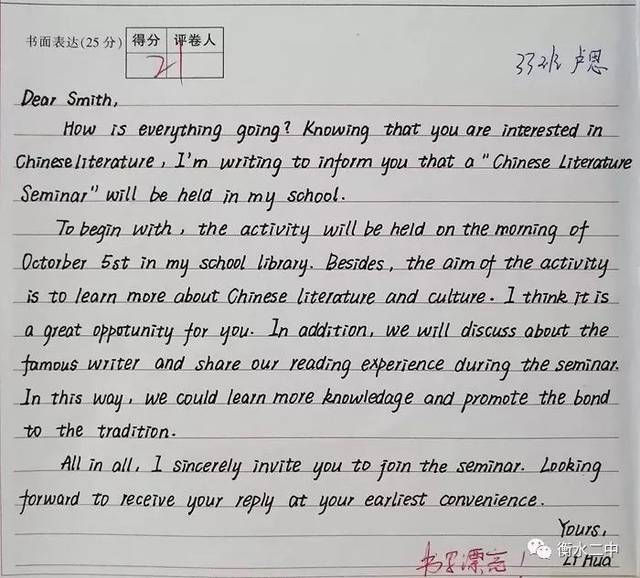 书面表达(25分) 得分 评卷人
21
33班 卢恩
Dear Smith,
How is everything going? Knowing that you are interested in
Chinese literature, I'm writing to inform you that a "Chinese Literature
Seminar" will be held in my school.
To begin with, the activity will be held on the morning of
Octorber 5st in my school library. Besides, the aim of the activity
is to learn more about Chinese literature and culture. I think it is
a great oppotunity for you. In addition, we will discuss about the
famous writer and share our reading experience during the seminar.
In this way, we could learn more knowledage and promote the bond
to the tradition.
All in all, I sincerely invite you to join the seminar. Looking
forward to receive your reply at your earliest convenience.
Yours,
Li Hua
书写漂亮!
衡水二中